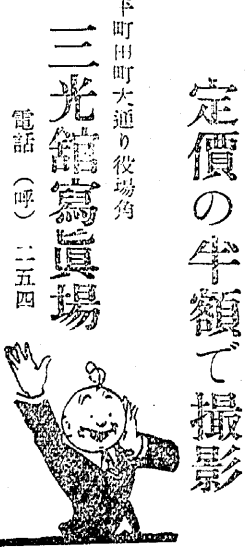 定價の半額で撮影
平町田町大通り役場角
三光館寫眞場
電話（呼）二五四